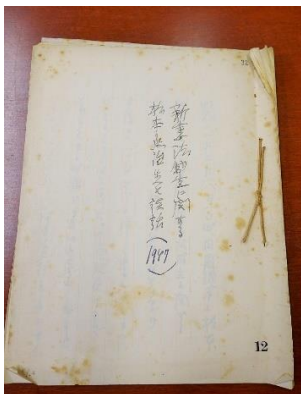 新憲法制定に関する
松本烝治先生談話
(1947)
12